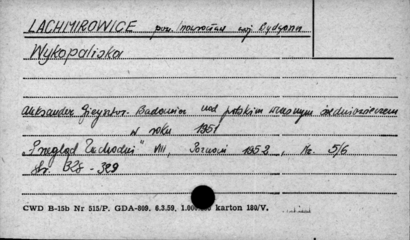 LACHMIROWICE pow. Inowrocław woj. Bydgoszcz
Wykopaliska
Aleksander Gieysztor. Badania nad polskim wczesnym średniowieczem
w roku 1951
„Przegląd Zachodni" VIII, Poznań 1952, Nr. 5/6
Str. - 329
CWD B-15b Nr 515/P. GDA-809, 6.3.59, karton 180/V.